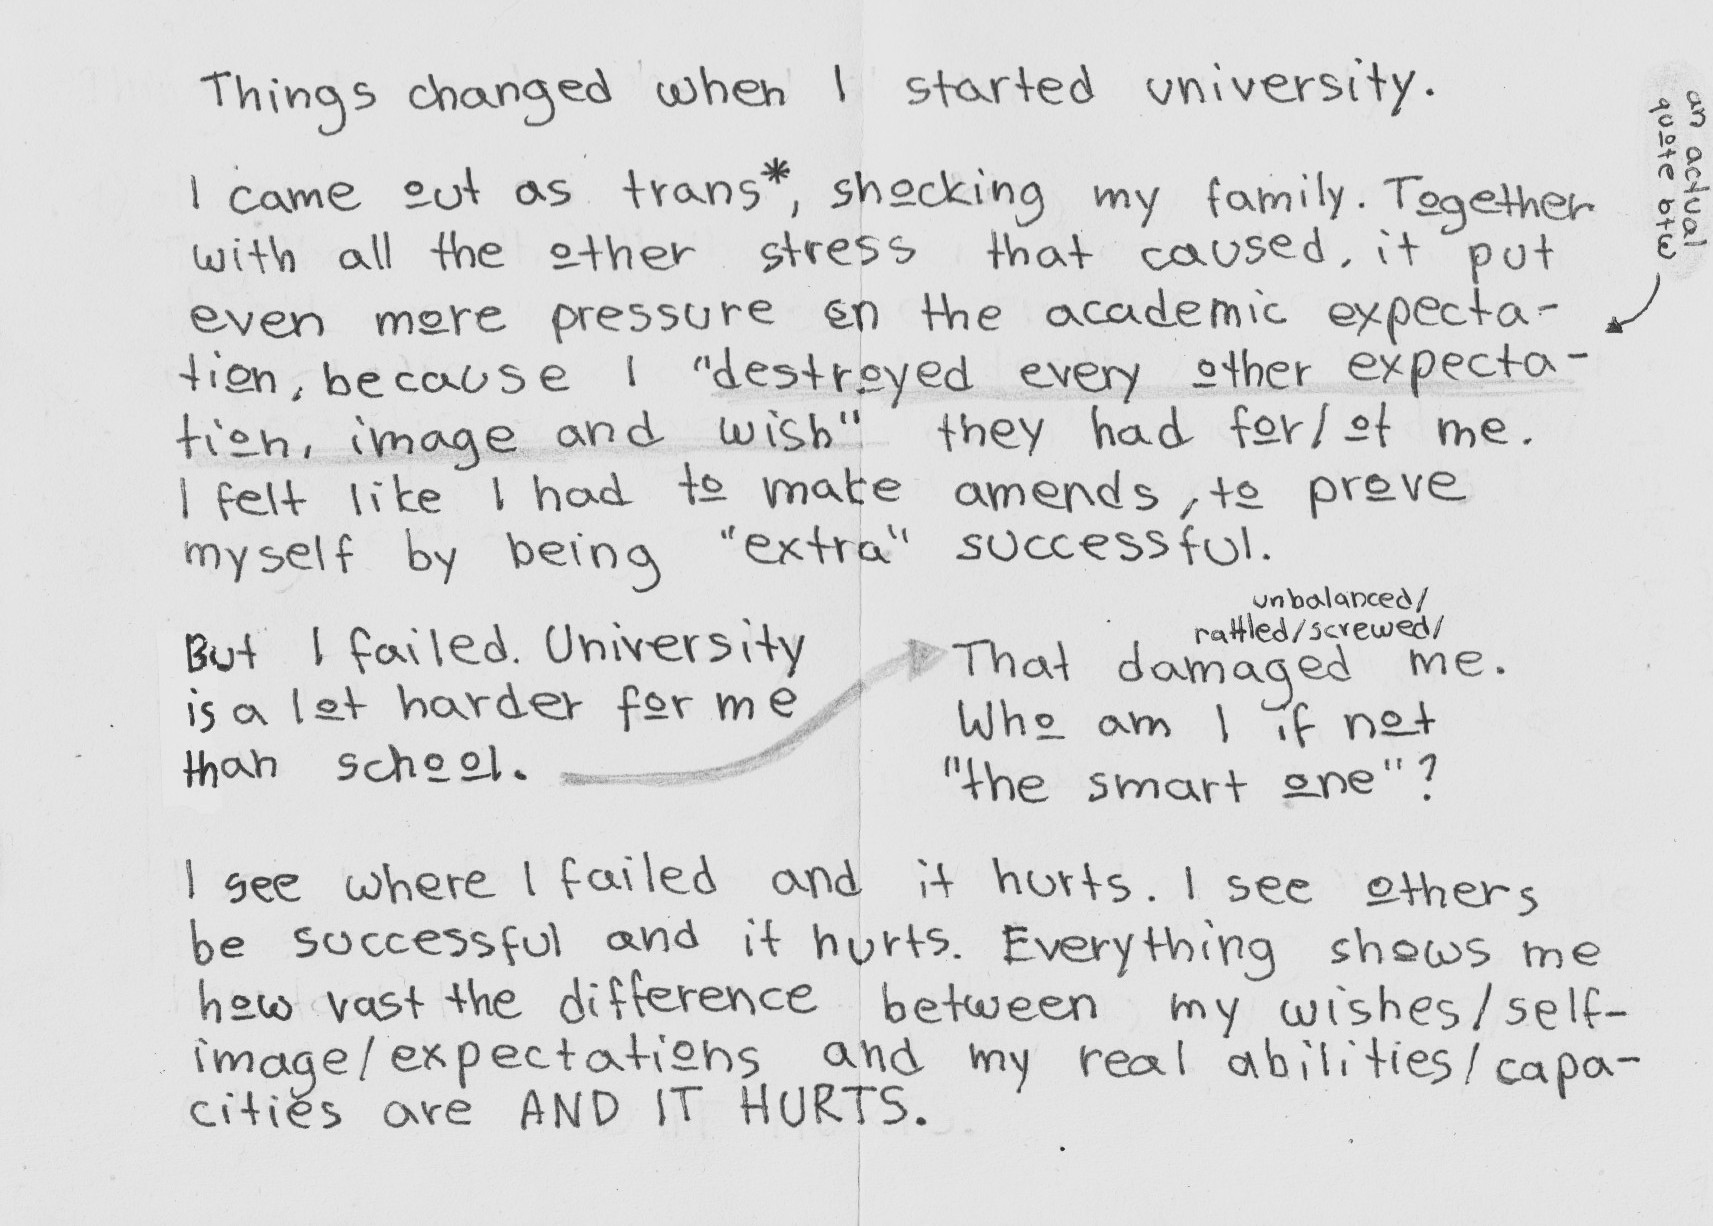 Things changed when I started university.
an actual
quote btw
I came out as trans*, shocking my family. Together
with all the other stress that caused, it put
even more pressure on the academic expecta-
tion, because I "destroyed every other expecta-
tion, image and wish" they had for/of me.
I felt like I had to make amends, to prove
myself by being "extra" successful.
But I failed. University
is a lot harder for me
than school.
unbalanced/
rattled/screwed/
That damaged me.
Who am I if not
"the smart one"?
I see where I failed and it hurts. I see others
be successful and it hurts. Everything shows me
how vast the difference between my wishes/self-
image/expectations and my real abilities/capa-
cities are AND IT HURTS.